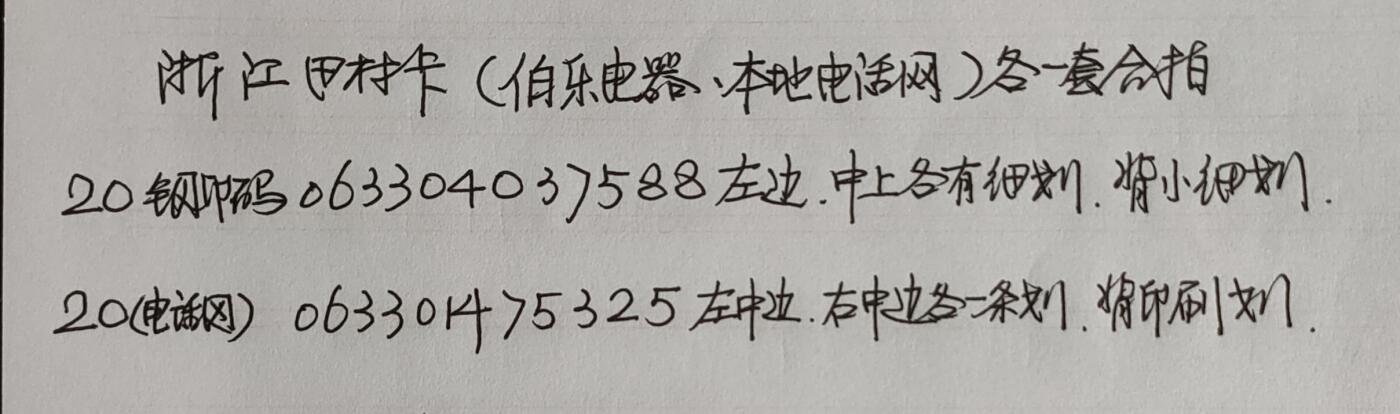 浙江田村卡（伯乐电器、本地电话网）各一套合拍
20钢印码063304037588左边.中上各有细划.背小细划.
20(电话网) 063301475325左中边.右中边各一条划.背印刷划.